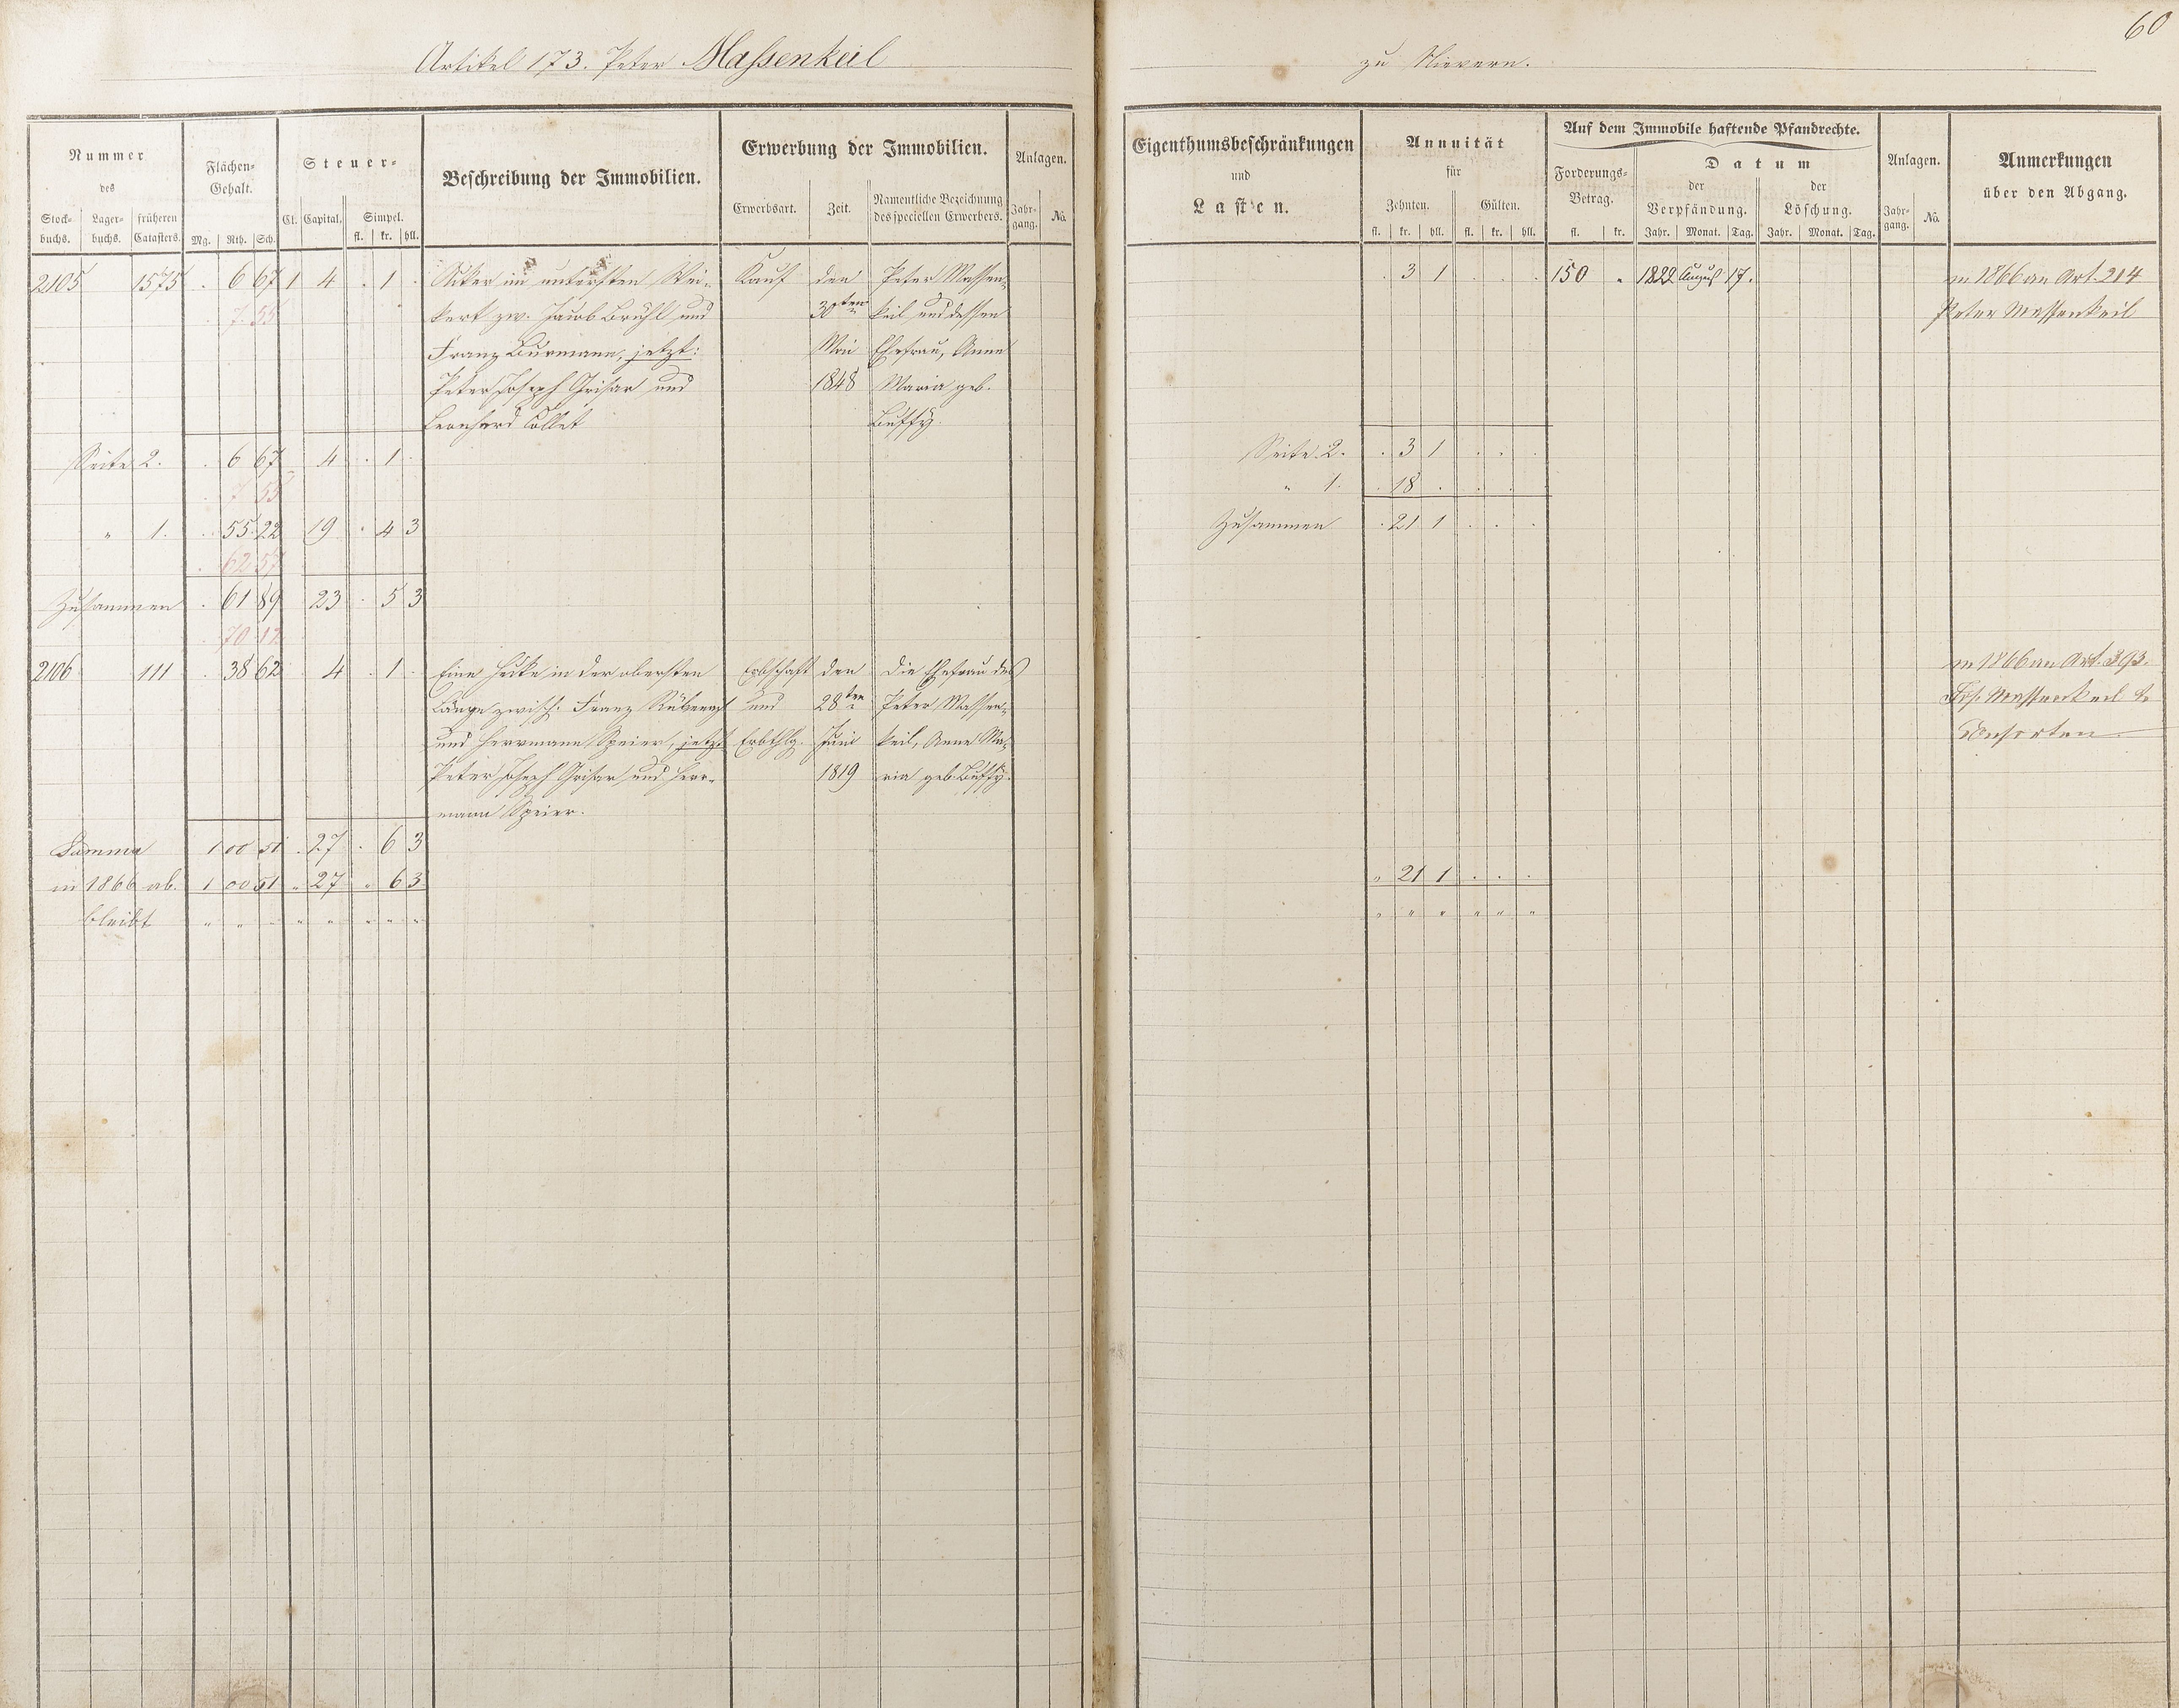 60
Artikel 173. Peter Maßenkeil
zu Nievern.
Nummer
des
Stock- buchs. Lager- buchs. früheren Catasters.
Flächen- Gehalt.
Mg. Rth. Sch.
Steuer-
Cl. Capital. Simpel.
fl. kr. hll.
Beschreibung der Immobilien.
Erwerbung der Immobilien.
Erwerbsart. Zeit. Namentliche Bezeichnung des speciellen Erwerbers.
Anlagen.
Jahr- gang. No.
Eigenthumsbeschränkungen
und
Lasten.
Annuität
für
Zehnten. Gülten.
fl. kr. hll. fl. kr. hll.
Auf dem Immobile haftende Pfandrechte.
Forderungs- Betrag.
fl. kr.
Datum
der Verpfändung. der Löschung.
Jahr. Monat. Tag. Jahr. Monat. Tag.
Anlagen.
Jahr- gang. No.
Anmerkungen
über den Abgang.
2105 1575 . 6 67 1 4 . 1 . Aker im untersten Wei- Kauf den Peter Massen- . 3 1 . . . 150 . 1822 August 17. in 1866 an Art. 214
. 7. 55 kert zw. Jacob Brühl und 30ten keil und dessen Peter Massenkeil
Franz Burmann, jetzt: Mai Ehefrau, Anna
Peter Joseph Grisar und 1848 Maria geb.
Leonhard Collet Buffy.
Seite 2. . 6 67 4 . 1 . Seite 2. . 3 1 . . .
. 7 55 " 1. . 18 . . . .
" 1. . 55 22 19 . 4 3 Zusammen . 21 1 . . .
. 62 57
Zusammen . 61 89 23 . 5 3
. 70 12
2106 111 . 38 62 4 . 1 . Eine Hecke in der obersten Erbschaft den Die Ehefrau des in 1866 an Art. 393.
Länge zwisch. Franz und 28ten Peter Massen- Jos. Massenkeil &
und Herrmann Speier, jetzt Erbthlg. Juni keil, Anna Ma- Consorten
Peter Joseph Grisar und Herr- 1819 ria geb. Buffy.
mann Speier.
Summa 1 00 51 . 27 . 6 3
in 1866 ab. 1 00 51 " 27 " 6 3 " 21 1 . . .
bleibt " " " " " " " " " " " " " "